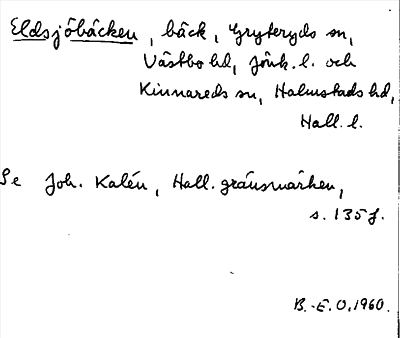 Eldsjöbäcken, bäck, Gryteryds sn,
Västbo hd, Jönk. l. och
Kinnareds sn, Halmstads hd,
Hall. l.
Se Joh. Kalén, Hall. gränsmärken,
s. 135 f.
B.-E. O. 1960.